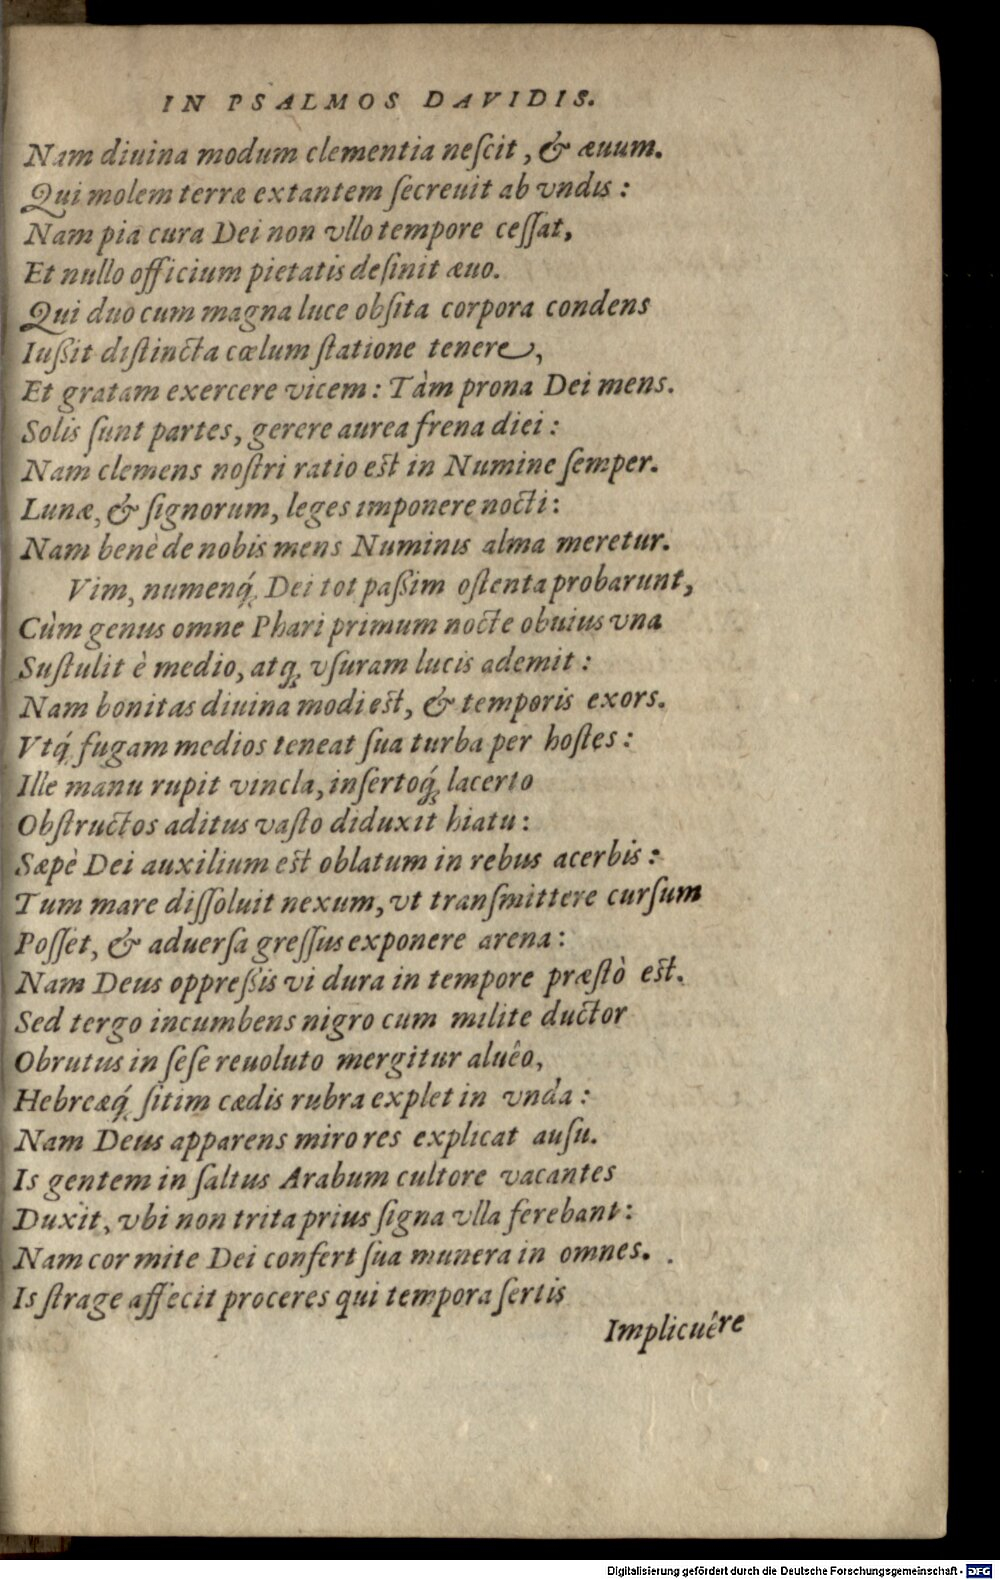 IN PSALMOS DAVIDIS.
Nam diuina modum clementia neſcit, & æuum.
Qui molem terræ extantem ſecreuit ab vndis:
Nam pia cura Dei non vllo tempore ceſſat,
Et nullo officium pietatis deſinit æuo.
Qui duo cum magna luce obſita corpora condens
Iußit diſtincta cœlum ſtatione tenere,
Et gratam exercere vicem: Tàm prona Dei mens.
Solis ſunt partes, gerere aurea frena diei:
Nam clemens noſtri ratio eſt in Numine ſemper.
Lunæ, & ſignorum, leges imponere nocti:
Nam benè de nobis mens Numinis alma meretur.
Vim, numenq́; Dei tot paßim oſtenta probarunt,
Cùm genus omne Phari primum nocte obuius vna
Suſtulit è medio, atq; vſuram lucis ademit:
Nam bonitas diuina modi eſt, & temporis exors.
Vtq́; fugam medios teneat ſua turba per hoſtes:
Ille manu rupit vincla, inſertoq́; lacerto
Obſtructos aditus vaſto diduxit hiatu:
Sæpè Dei auxilium eſt oblatum in rebus acerbis:
Tum mare diſſoluit nexum, vt tranſmittere curſum
Poſſet, & aduerſa greſſus exponere arena:
Nam Deus oppreßis vi dura in tempore præſtò eſt.
Sed tergo incumbens nigro cum milite ductor
Obrutus in ſeſe reuoluto mergitur aluêo,
Hebreæq́; ſitim cædis rubra explet in vnda:
Nam Deus apparens miro res explicat auſu.
Is gentem in ſaltus Arabum cultore vacantes
Duxit, vbi non trita prius ſigna vlla ferebant:
Nam cor mite Dei confert ſua munera in omnes.
Is ſtrage affecit proceres qui tempora ſertis
Implicuêre
Digitalisierung gefördert durch die Deutsche Forschungsgemeinschaft - DFG